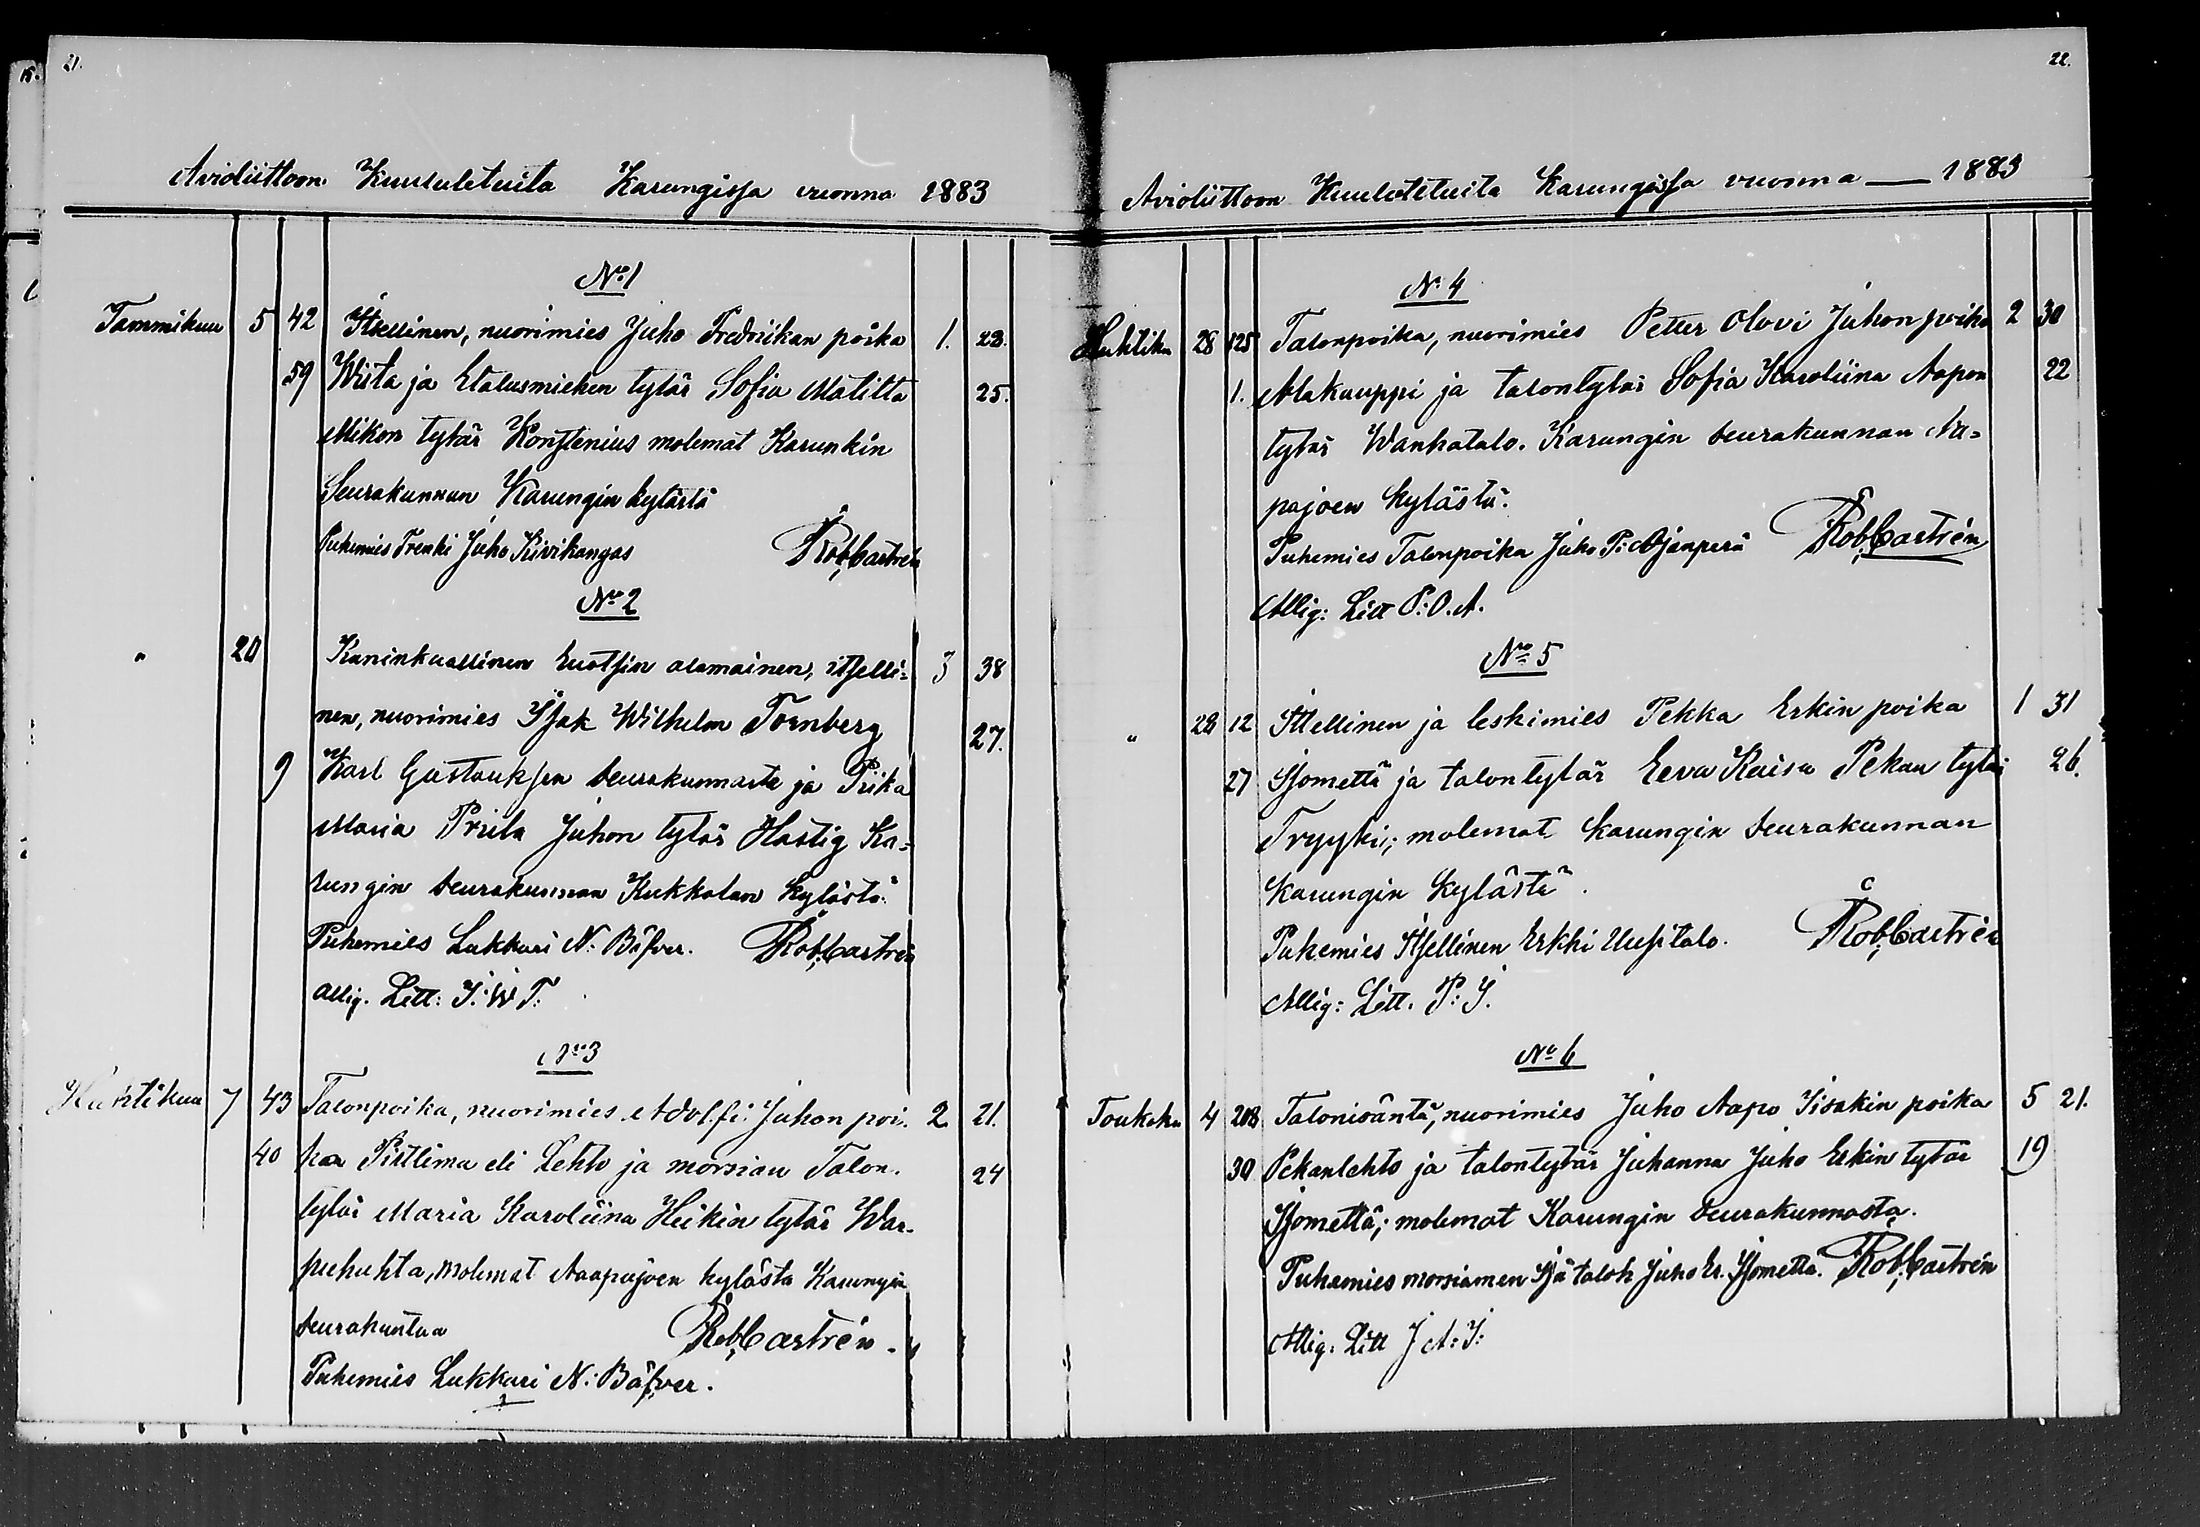 21.
Avioliittoon Kuuluteluita Karungissa vuonna 1883
No 1
Tammikuu 5 42 Itsellinen, nuorimies Juho Fredriikan poika 1. 23.
59 Wiita ja Etalusmiehen tytär Sofia Matilta 25.
Mikon tytär Konstenius molemat Karunkin
Seurakunnan Karungin kylästä
Puhemies Frenki Juho Kivikangas Rob. Castrén
No 2
" 20 Kuninkaallinen Ruotsin alamainen, itselli= 3 38
nen, nuorimies Isak Wilhelm Tornberg 27.
9 Karl Gustauksen seurakunnasta ja Piika
Maria Priita Juhon tytär Hastig Ka=
rungin seurakunnan Kukkolan kylästä.
Puhemies Lukkari N: Bäfver. Rob. Castrén
Allig. Litt: I: W T:
No 3
Huhtikuu 7 43 Talonpoika, nuorimies Adolfi: Juhon poi- 2. 21.
40 ka Pistlima eli Lehto ja morsian Talon- 24
tytär Maria Karoliina Heikin tytär War-
puhuhta, molemat Aapajoen kylästä Karungin
seurakuntaa Rob. Castrén.
Puhemies Lukkari N: Bäfver.
22.
Avioliittoon Kuuluteluita Karungissa vuonna — 1883
No 4
Huhtiku 28 125 Talonpoika, nuorimies Petter Olovi Juhon poika 2 30
1. Alakauppi ja talontytär Sofia Karoliina Aapon 22
tytär Wanhatalo. Karungin seurakunnan Aa=
pajoen kylästä.
Puhemies Talonpoika Juho P: Ojanperä Rob. Castrén
Allig: Litt P: O. A.
No 5
" 28 12 Itsellinen ja leskimies Pekka Erkin poika 1 31
27 Isometsä ja talontytär Eeva Kaisa Pekan tytär 26.
Fryyki; molemat Karungin seurakunnan
Karungin kylästä.
Puhemies Itsellinen Erkki Uusitalo. Rob. Castrén
Allig: Litt. P: I.
No 6
Toukoku 4 208 Talonisäntä, nuorimies Juho Aapo Iisakin poika 5 21.
30 Pekanlehto ja talontytär Juhanna Juho Erkin tytär 19
Isometsä; molemat Karungin seurakunnasta.
Puhemies morsiamen Isä taloh Juho Er. Isometsä. Rob. Castrén
Allig. Litt J A: I: